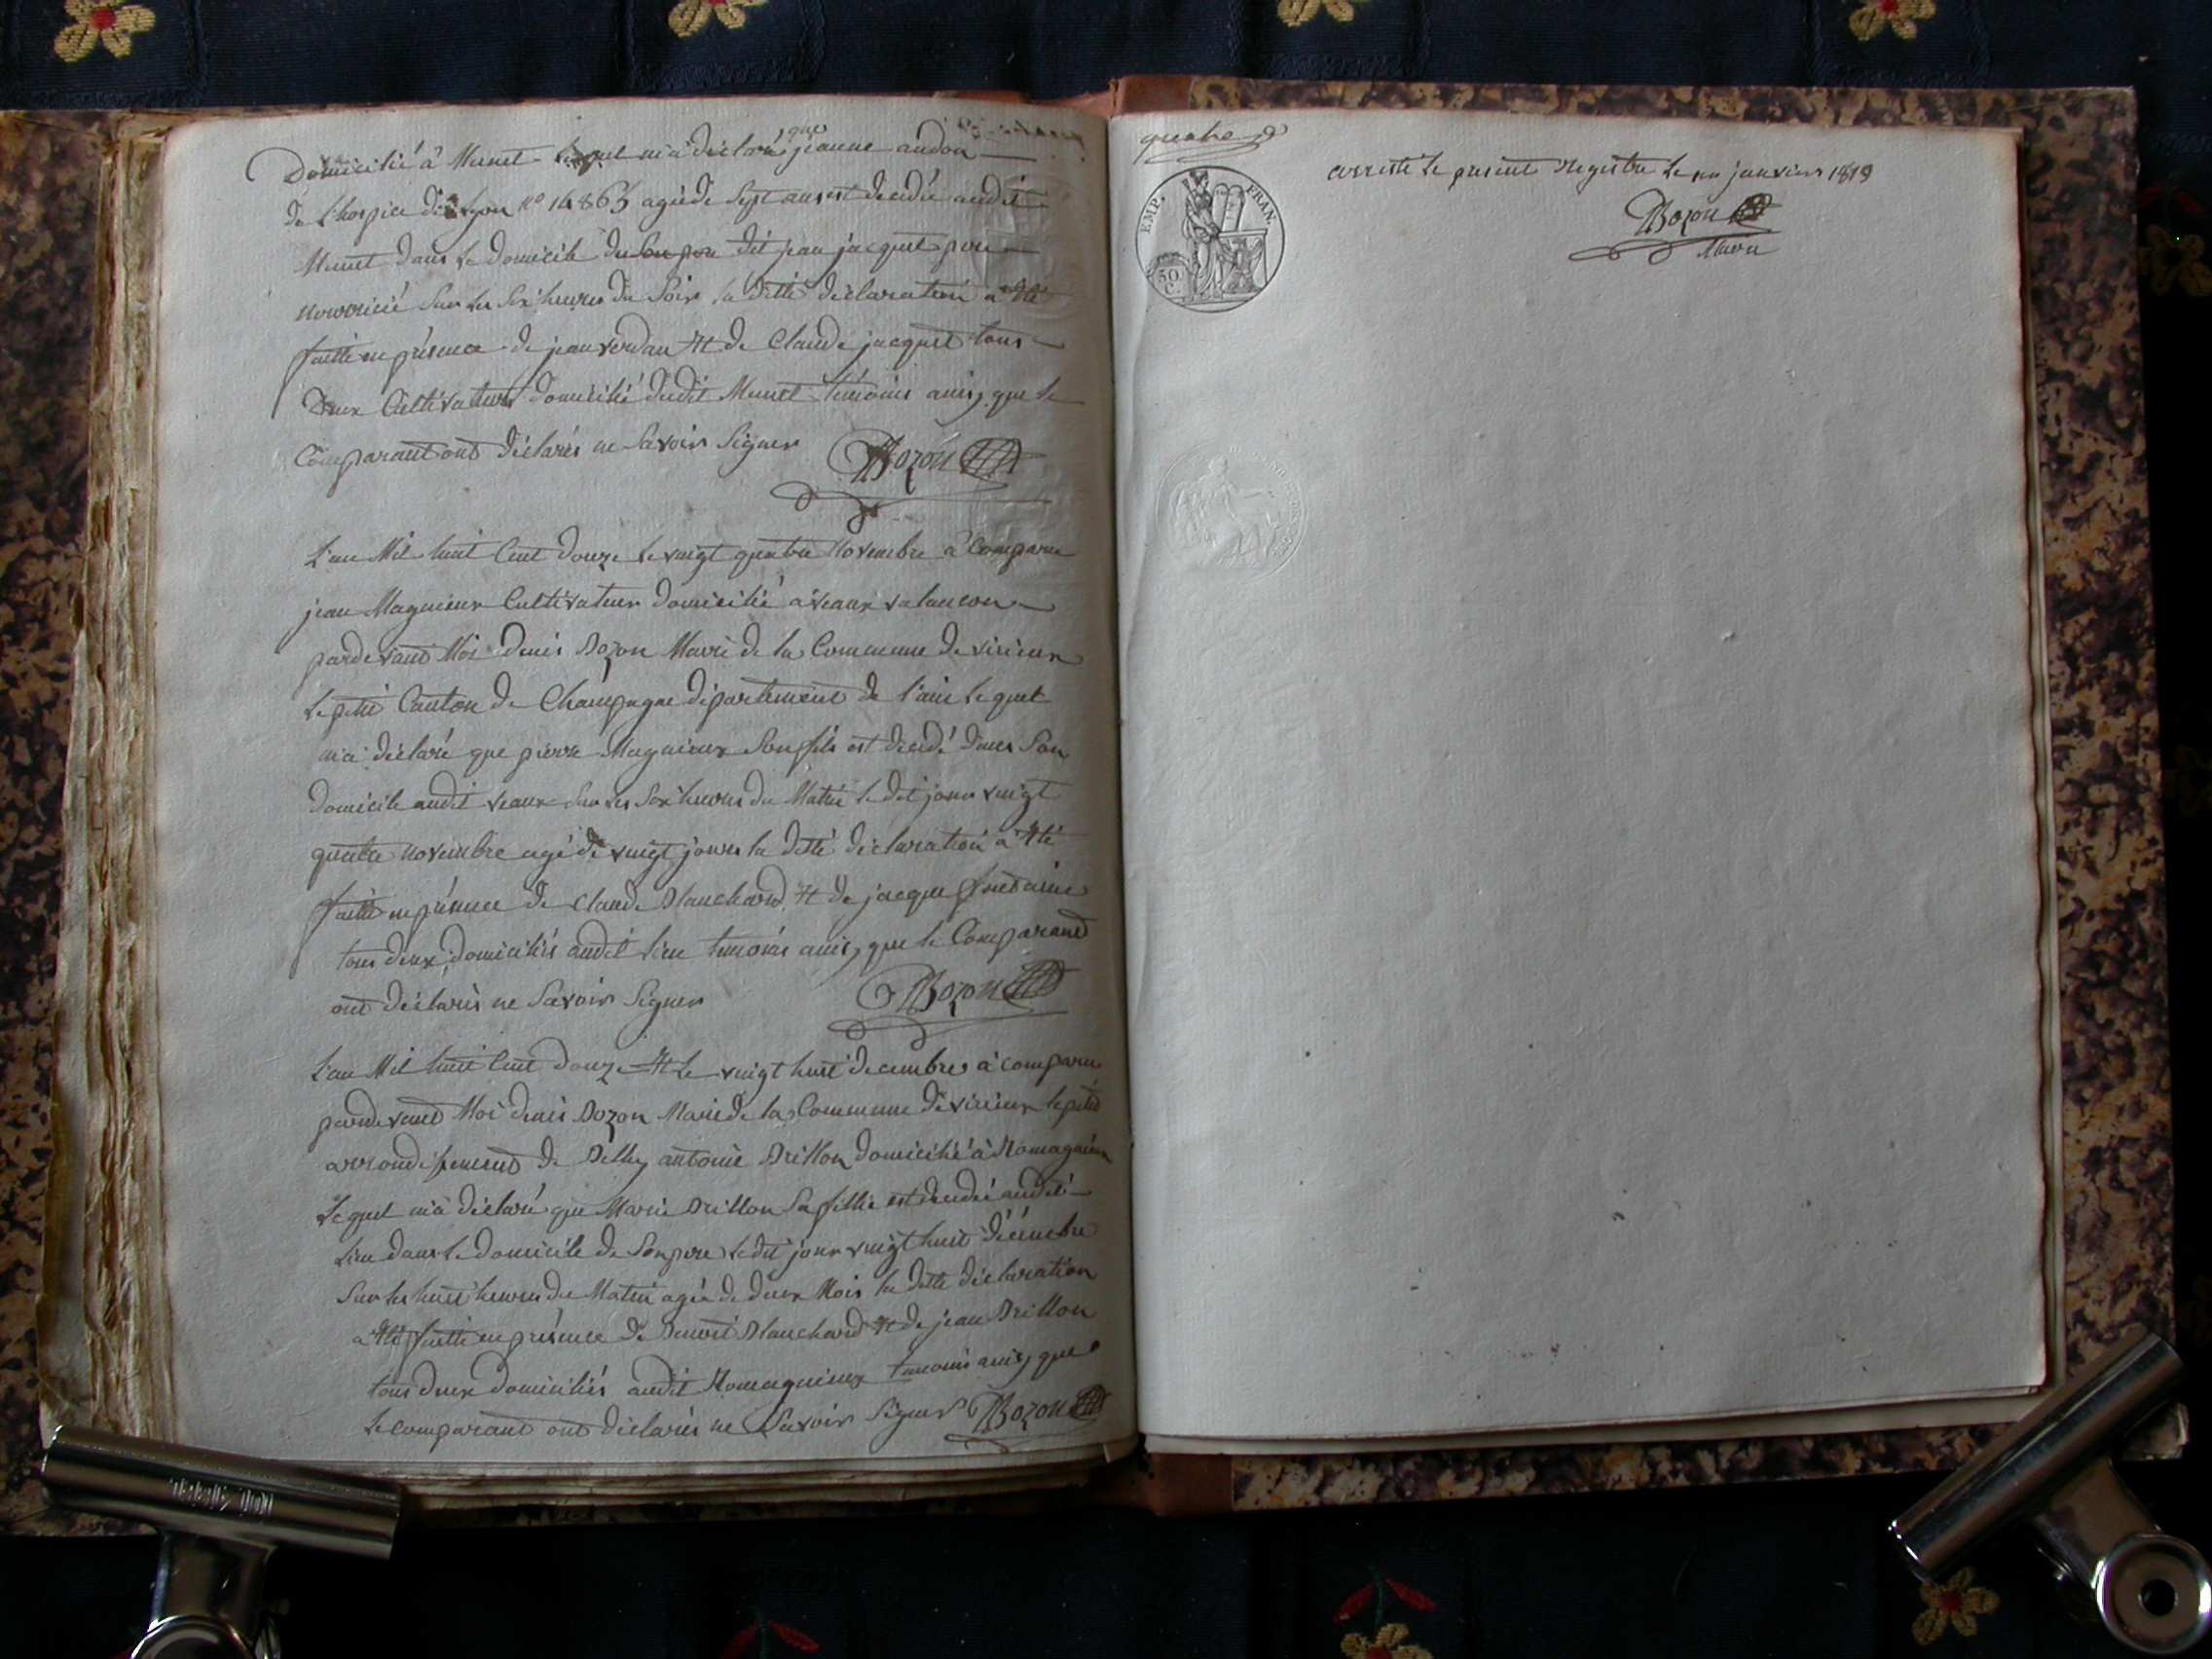 Domicilié à Munet lequel m'a déclaré que jeanne audon
de l'hospice de Lyon n° 14865 agée de sept ans est decedée audit
Munet dans le domicile du son pere dit jean jacquet pere
nourricié sur les six heures du soir la ditte déclaration a été
faitte en présence de jean verdan et de Claude jacquet tous
deux Cultivateurs domicilié dudit Munet témoins ainsy que le
Comparant ont déclarés ne savoir signer Bozon
L'an Mil huit Cent douze le vingt quatre Novembre à Comparu
jean Magnieux Cultivateur domicilié à veaux valancon
pardevant Moi denis Bozon Maire de la Commune de virieux
le petit Canton de Champagne département de l'ain lequel
m'a déclaré que pierre Magnieux son fils est decedé dans son
domicile audit veaux sur les six heures du Matin le dit jour vingt
quatre novembre agé de vingt jours la ditte déclaration a été
faitte en présence de Claude Blanchard et de jacque
tous deux domiciliés audit lieu temoins ainsy que le Comparant
ont déclarés ne savoir signer Bozon
L'an Mil huit Cent douze et le vingt huit decembre à comparu
pardevant Moi denis Bozon Maire de la Commune de virieux le petit
arrondissement de Belley antoine Brillon domicilié à Romagnieux
lequel m'a déclaré que Marie Brillon sa fillie est decedée audit
lieu dans le domicile de son pere le dit jour vingt huit décembre
sur les huit heures du Matin agée de deux Mois la ditte déclaration
a été faitte en présence de Benoit Blanchard et de jean Brillon
tous deux domiciliés audit Romagnieux temoins ainsy que
le comparant ont déclarés ne savoir signer Bozon
quatre
EMP. FRAN.
50 C.
arresté le present Registre le un janvier 1813
Bozon
Maire